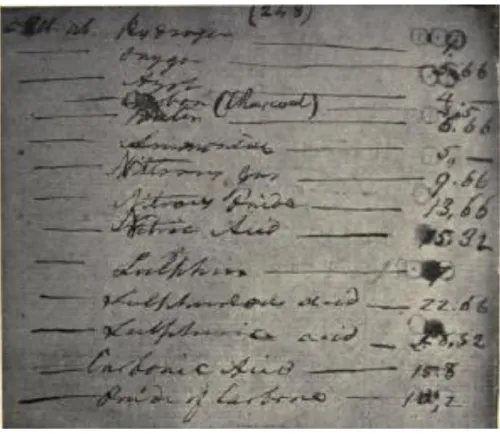 (248)
Ult. at. Hydrogen 1
Oxygen 5.66
Azot 4
Carbon (Charcoal) 4.5
Water 6.66
Ammonia 5
Nitrous gas 9.66
Nitrous Oxide 13,66
Nitric Acid 15.32
Sulphur
Sulphureous acid 22.66
Sulphuric acid 28.32
Carbonic Acid 15.8
Oxide of Carbone 10,2